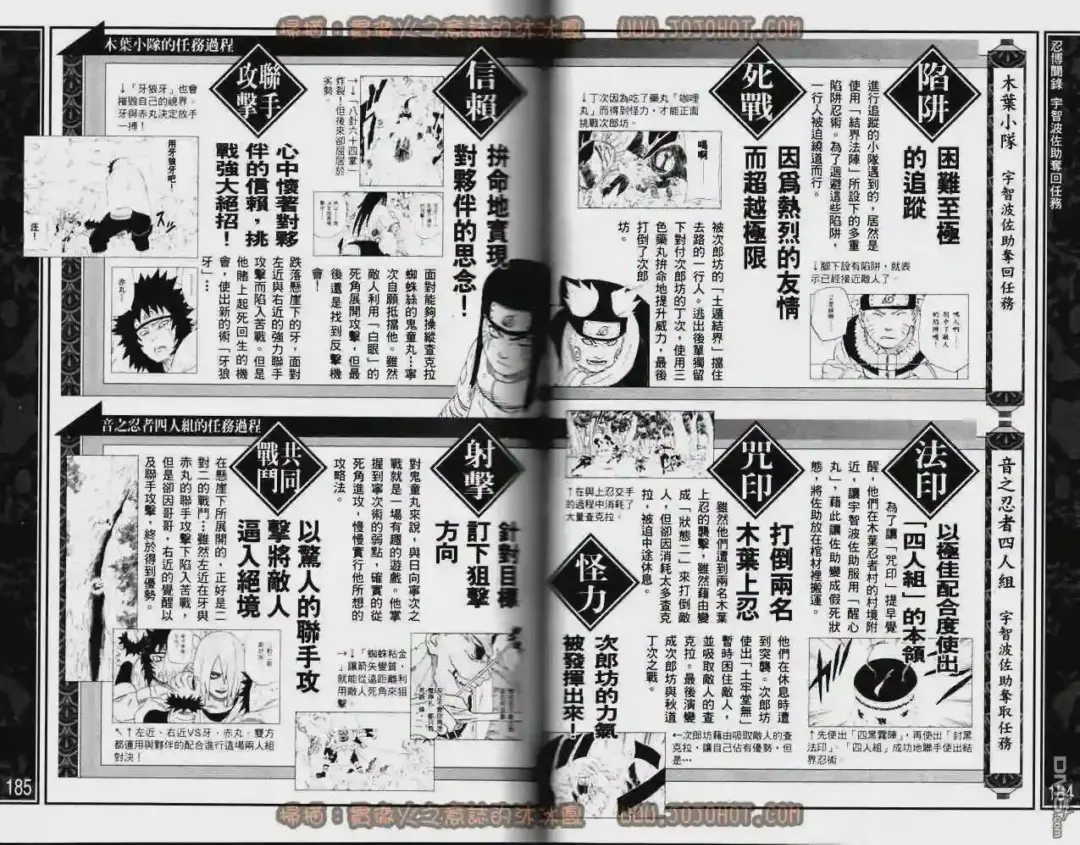 掃描：冒險火之意誌的沐沐團 WWW.JOJOHOT.COM
忍博聞錄 宇智波佐助奪回任務
木葉小隊 宇智波佐助奪回任務
木葉小隊的任務過程
陷阱
困難至極
的追蹤
進行追蹤的小隊遇到的，居然是
使用「結界法陣」所設下的多重
陷阱忍術。為了迴避這些陷阱，
一行人被迫繞道而行。
↓腳下設有陷阱，就表
示已經接近敵人了。
死戰
因為熱烈的友情
而超越極限
↓丁次因為吃了藥丸「咖哩
丸」而得到怪力，才能正面
挑戰次郎坊。
嗚啊
被次郎坊的「土遁結界」擋住
去路的一行人。逃出後單獨留
下對付次郎坊的丁次，使用三
色藥丸拚命地提升威力，最後
打倒了次郎
坊。
信賴
拚命地實現
對夥伴的思念！
↓「八卦六十四掌」
炸裂！但後來卻屈居於
劣勢。
面對能夠操縱查克拉
蜘蛛絲的鬼童丸…寧
次自願抵擋他。雖然
敵人利用「白眼」的
死角展開攻擊，但最
後還是找到反擊的機
會！
聯手
攻擊
心中懷著對夥
伴的信賴，挑
戰強大絕招！
↓「牙狼牙」也會
摧毀自己的視界。
牙與赤丸決定放手
一搏！
用牙狼牙吧！
汪！
赤丸…
跌落懸崖下的牙，面對
左近與右近的強力聯手
攻擊而陷入苦戰。但是
他賭上起死回生的機
會，使出新的術「牙狼
牙」…
音之忍者四人組 宇智波佐助奪取任務
音之忍者四人組的任務過程
法印
以極佳配合度使出
「四人組」的本領
為了讓「咒印」提早覺
醒，他們在木葉忍者村的村境附
近，讓宇智波佐助服用「醒心
丸」，藉此讓佐助變成假死狀
態，將佐助放在棺材裡搬運。
↑先使出「四黑霧陣」，再使出「封黑
法印」、「四人組」成功地聯手使出結
界忍術。
咒印
打倒兩名
木葉上忍
↑在與上忍交手
的過程中消耗了
大量查克拉。
雖然他們遭到兩名木葉
上忍的襲擊，雖然藉由變
成「狀態二」來打倒敵
人，但卻因消耗太多查克
拉，被迫中途休息。
怪力
次郎坊的力氣
被發揮出來！
他們在休息時遭
到突襲。次郎坊
使出「土牢堂無」
暫時困住敵人，
並吸取敵人的查
克拉。最後演變
成次郎坊與秋道
丁次之戰。
←次郎坊藉由吸取敵人的查
克拉，讓自己佔有優勢，但
是…
射擊
針對目標
訂下狙擊
方向
對鬼童丸來說，與日向寧次之
戰就是一場有趣的遊戲。他掌
握到寧次術的弱點，確實的從
死角進攻，慢慢實行他所想的
攻略法。
→↓「蜘蛛粘金
」讓箭矢變質，
就能從遠距離利
用敵人死角來狙
擊。
共同
戰鬥
以驚人的聯手攻
擊將敵人
逼入絕境
在懸崖下所展開的，正好是二
對二的戰鬥…雖然左近在牙與
赤丸的聯手攻擊下陷入苦戰，
但是卻因哥哥，右近的覺醒以
及聯手攻擊，終於得到優勢。
↖↑左近、右近VS牙，赤丸，雙方
都運用與夥伴的配合進行這場兩人組
對決！
185
184
掃描：冒險火之意誌的沐沐團 WWW.JOJOHOT.COM